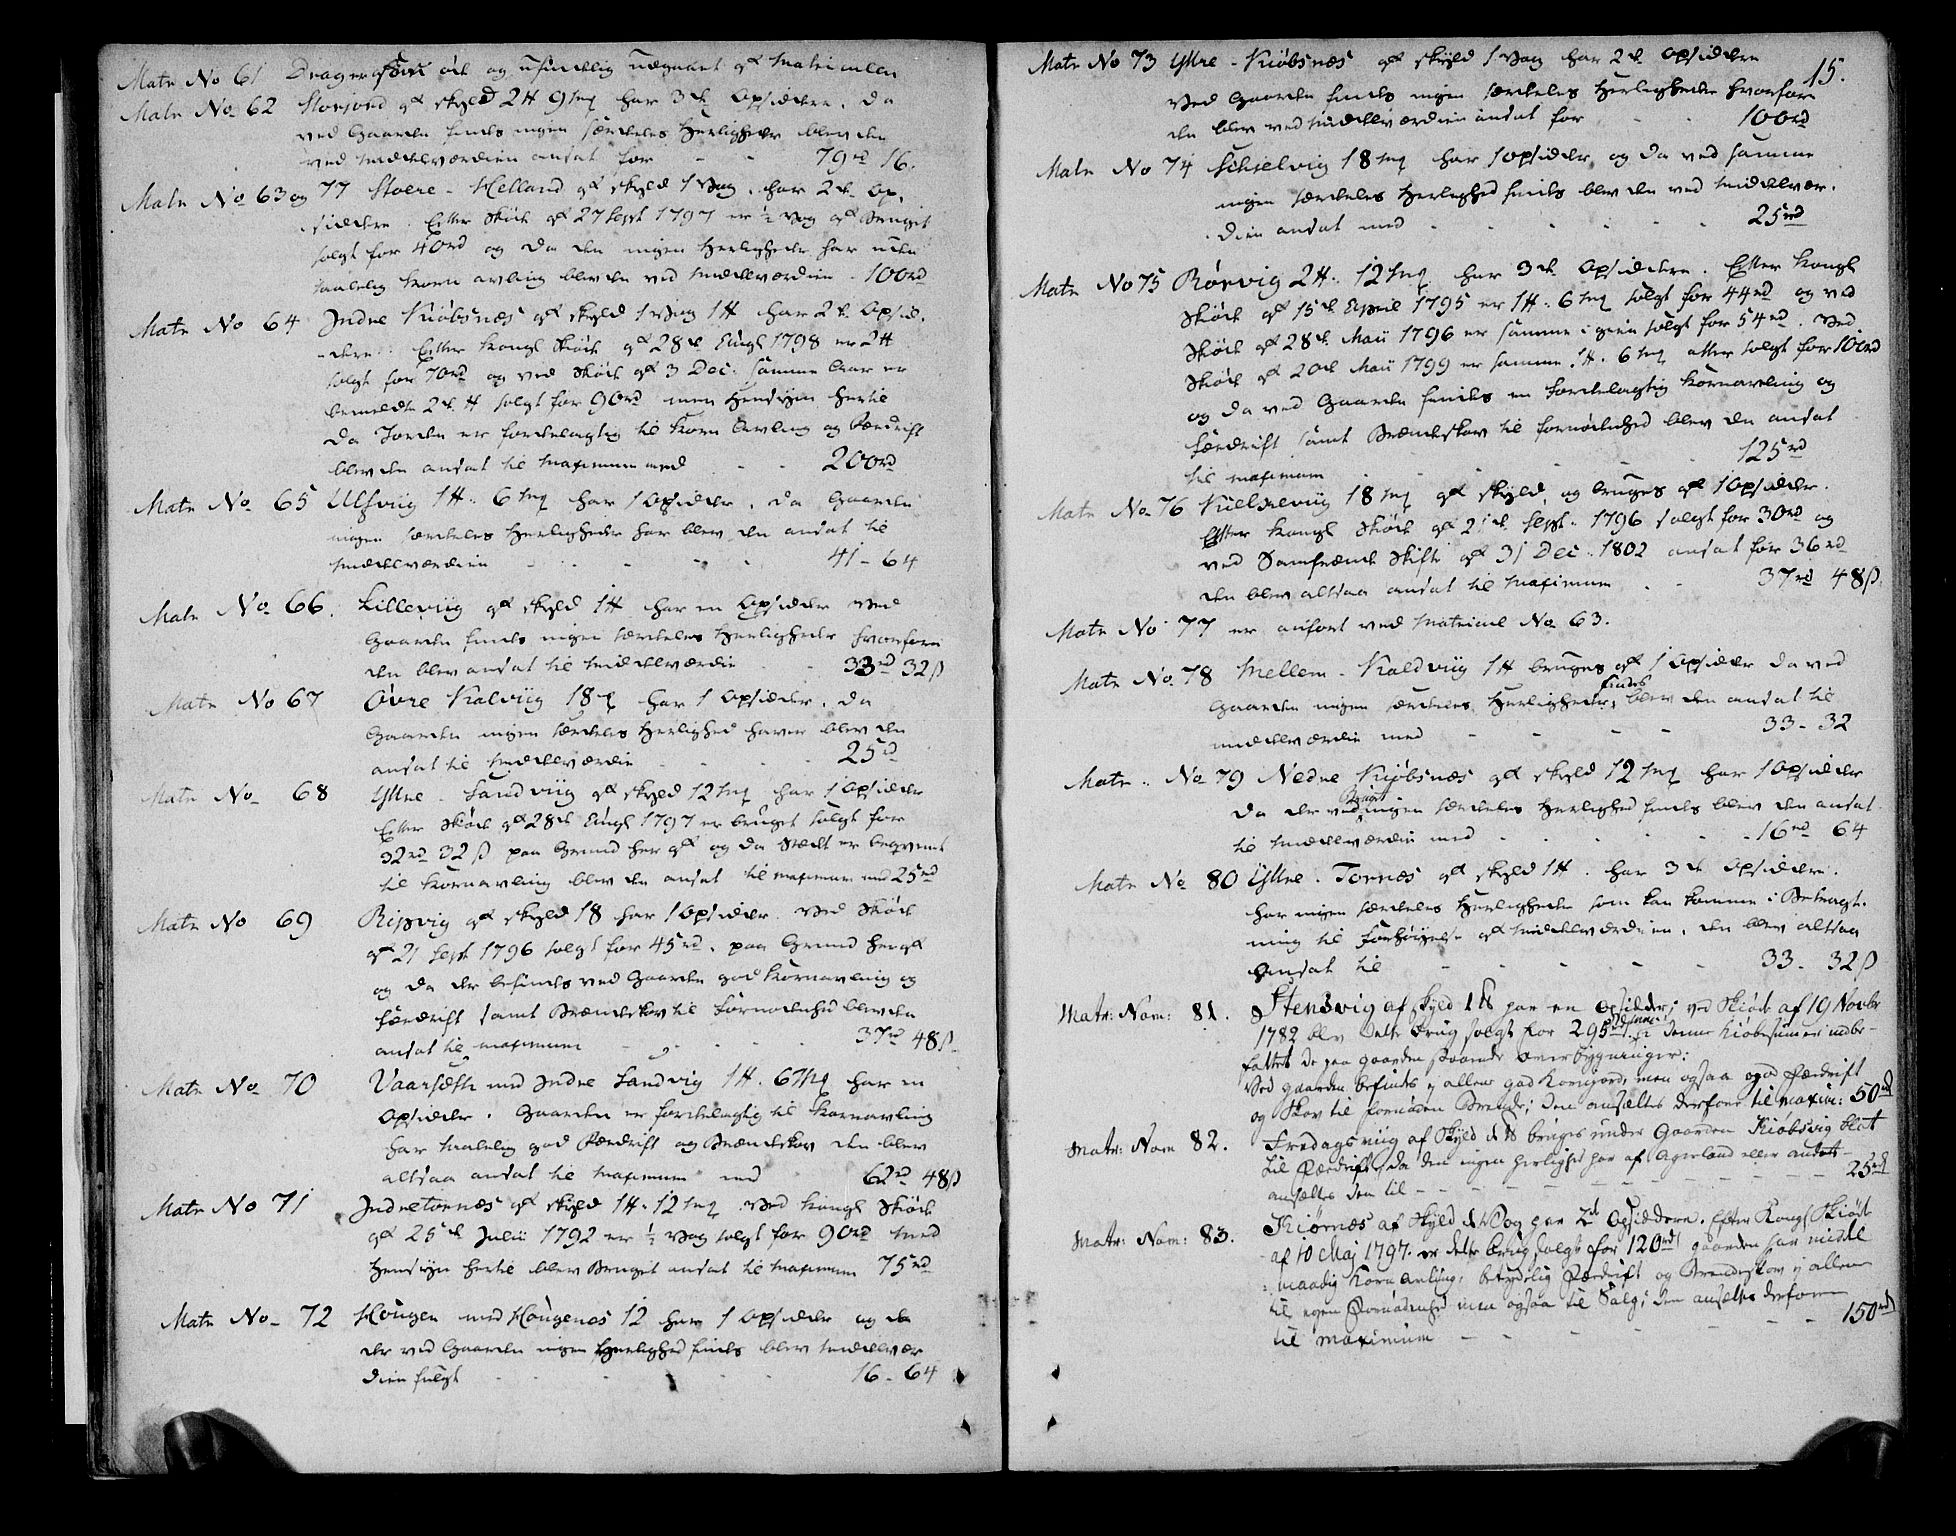 Matr No 61 Drager øde og ud af Matriculen
Matr No 62 Storjord af skyld 2 ℔ 9 mk har 3de Opsiddere. Da
ved Gaarden findes ingen særdeles Herligheder blev den
ved Middelværdien ansat for - - 79rd 16.
Matr No 63 og 77 Store-Helland af skyld 1 Vog. har 2de Op-
siddere. Efter Skiøde af 27 Sept 1797 er ½ Vog af Bruget
solgt for 40rd og da den ingen Herligheder har uden
maadelig Korn avling blev den ved Middelværdien - 100rd
Matr No 64 Indre Kiøbsnæs af skyld 1 Vog 1 ℔ har 2de Opsid-
dere. Efter Kongl Skiøde af 28de Augl 1798 er 2 ℔
solgt for 70rd og ved Skiøde af 3 Dec: samme Aar er
bemeldte 2de ℔ solgt for 90rd med Hensyn hertil
da Jorden er fordelagtig til Korn Avling og Fædrift
blev den ansat til Maximum med - - 200rd
Matr No 65 Ulsviig 1 ℔. 6 mk har 1 Opsidder. da Gaarden
ingen særdeles Herligheder har blev den ansat til
Middelværdien - - - 41 - 64
Matr No 66. Lilleviig af skyld 1 ℔ har en Opsidder ved
Gaarden findes ingen særdeles Herligheder hvorfore
den blev ansat til Middelværdie - - 33rd 32 ß
Matr No 67 Øvre Kalviig 18 mk har 1 Opsidder. da
Gaarden ingen særdeles Herlighed haver blev den
ansat til Middelværdie - - - 25rd
Matr No 68 Yttre-Sandviig af skyld 12 mk har 1 Opsidder
Efter Skiøde af 28de Augl 1797 er bruget solgt for
32rd 32 ß paa Grund her af og da Stedet er beqvemt
til Kornavling blev den ansat til maximum med 25rd
Matr No 69 Ripvig af skyld 18 har 1 Opsidder. Ved Skiøde
af 21 Sept 1796 solgt for 45rd. paa Grund her af
og da der befindes ved Gaarden god Kornavling og
Fædrift samt Brændeskov til Fornødenhed blev den
ansat til maximum - - - 37rd 48 ß
Matr No 70 Vaarsæth med Indre Sandvig 1 ℔. 6 mk har en
Opsidder. Gaarden er fordelagtig til Kornavling
har maadelig god Fædrift og Brændeskov den blev
altsaa ansat til Maximum med - 62rd 48 ß
Matr No 71 Indretornæs af skyld 1 ℔. 12 mk. Ved Kongl Skiøde
af 25de Julii 1792 er ½ Vog solgt for 90rd med
Hensyn hertil blev Bruget ansat til Maximum 75rd
Matr No 72 Hougen med Hougenes 12 har 1 Opsidder og da
der ved Gaarden ingen Herlighed findes blev Middelvær
dien fulgt - - - 16 - 64
15.
Matr No 73 Yttre-Kiøbsnæs af skyld 1 Vog har 2de Opsiddere
Ved Gaarden findes ingen særdeles Herligheder hvorfore
den blev ved Middelværdien ansat for - - 100rd
Matr No 74 Schielvig 18 mk har 1 Opsidder og da ved samme
ingen særdeles Herlighed findes blev den ved Middelvær-
dien ansat med - - - 25rd
Matr No 75 Rørvig 2 ℔. 12 mk har 3de Opsiddere. Efter Kongl
Skiøde af 15de April 1795 er 1 ℔. 6 mk solgt for 44rd og ved
Skiøde af 28de Maii 1796 er samme igien solgt for 54rd. Ved
Skiøde af 20de Maii 1799 er samme 1 ℔. 6 mk atter solgt for 100rd
og da ved Gaarden findes en fordelagtig Kornavling og
Fædrift samt Brændeskov til fornødenhed blev den ansat
til maximum - - - 125rd
Matr No 76 18 mk af skyld, og bruges af 1 Opsidder.
Efter Kongl Skiøde af 21de Sept: 1796 solgt for 30rd og
ved Samfrænde Skifte af 31 Dec: 1802 ansat for 36rd
den blev altsaa ansat til Maximum - - 37rd 48 ß.
Matr No 77 er anført ved Matricul No 63.
Matr No 78 Mellem-Kaldviig 1 ℔ bruges af 1 Opsidder da ved
Gaarden ingen særdeles Herligheder findes blev den ansat til
middelværdie med - - - 33 - 32
Matr: No 79 Nedre Kiøbsnæs af skyld 12 mk har 1 Opsidder
da der ved Bruget ingen særdeles Herlighed findes blev den ansat
til Middelværdien med - - - 16rd 64
Matr No 80 Yttre-Tornæs af skyld 1 ℔. har 3de Opsiddere.
har ingen særdeles Herligheder som kan komme i Betragt-
ning til Forhøyelse af Middelværdien, den blev altsaa
Ansat til - - - 33 - 32 ß
Matr: Nom: 81. Stensvig af Skyld 1 ℔ har en Opsidder; ved Skiøde af 19 Novbr
1782 blev dette brug solgt for 295rd; i denne Kiøbesummer indbe-
fattet de paa gaarden staaende overbygninger;
Ved gaarden befindes ej allene god Kornjord, men ogsaa god Fædrift
og Skov til fornøden Brende; den ansættes derfore til maxim: 50rd
Matr: Nom 82. Fredagsviig af Skyld 1 ℔ bruges under Gaarden Kiøbsvig blot
til Fædrift, da den ingen herlighed har af Agerland eller andet
ansættes den til - - - 25rd
Matr: Nom: 83. Kiørnæs af Skyld 1 Vog har 2de Opsiddere. Efter Kongl Skiøde
af 10 Maj 1797. er dette brug solgt for 120rd gaarden har middel
maadig Korn Avling, betydelig Fædrift og Brendeskov ej allene
til egen Fornødenhed men ogsaa til Salg; den ansættes derfore
til maximum - - - 150rd